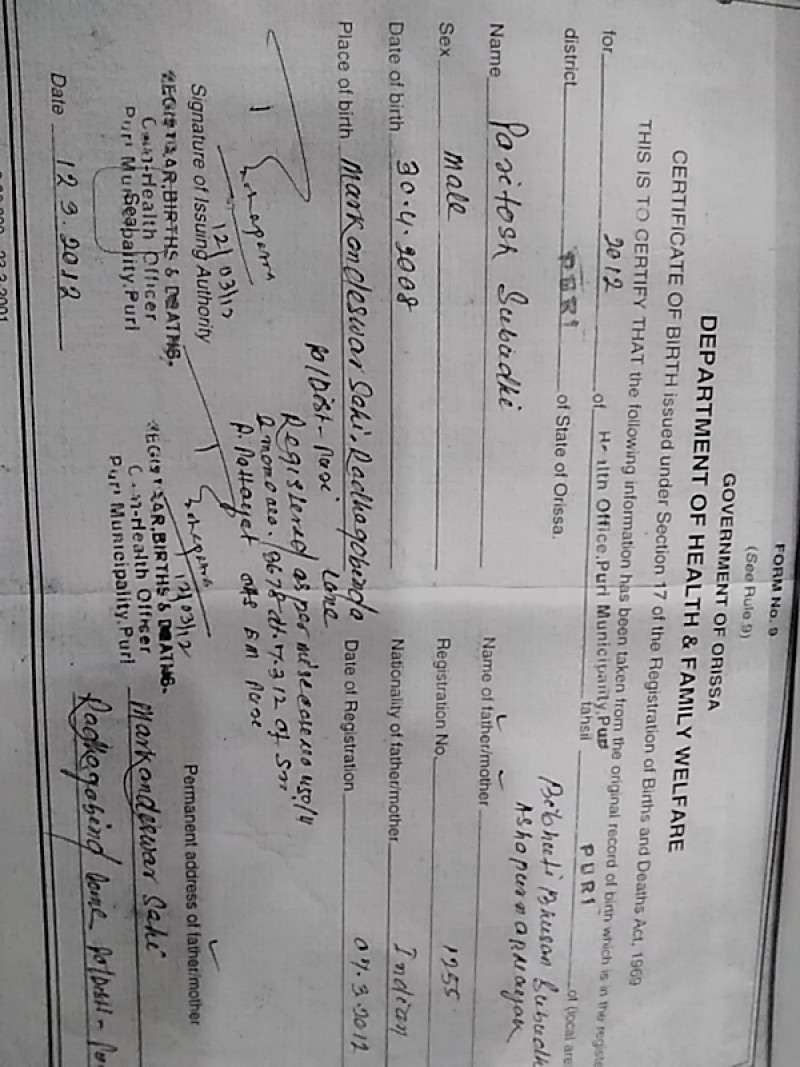 FORM No. 9
(See Rule 9)
GOVERNMENT OF ORISSA
DEPARTMENT OF HEALTH & FAMILY WELFARE
CERTIFICATE OF BIRTH issued under Section 17 of the Registration of Births and Deaths Act, 1969
THIS IS TO CERTIFY THAT the following information has been taken from the original record of birth which is in the registe
for 2012 of Health Office, Puri Municipality, Puri tahsil PURI of (local are
district PURI of State of Orissa.
Name Paritosh Subudhi Name of father/mother Bibhuti Bhusan Subudh
Sex Male Registration No. 1255
Date of birth 30.4.2008 Nationality of father/mother Indian
Place of birth Markondeswar Sahi, Radhagobinda Lane Date of Registration 07.3.2012
Po/Dist - Puri
Registered as per misc case no
Signature of Issuing Authority
12/03/12
REGISTRAR, BIRTHS & DEATHS.
Cum-Health Officer
Puri Municipality, Puri
Seal
Date 12.3.2012
12/03/12
REGISTRAR, BIRTHS & DEATHS.
Cum-Health Officer
Puri Municipality, Puri
Permanent address of father/mother
Markondeswar Sahi
Radhagobind Lane Po/Dist -